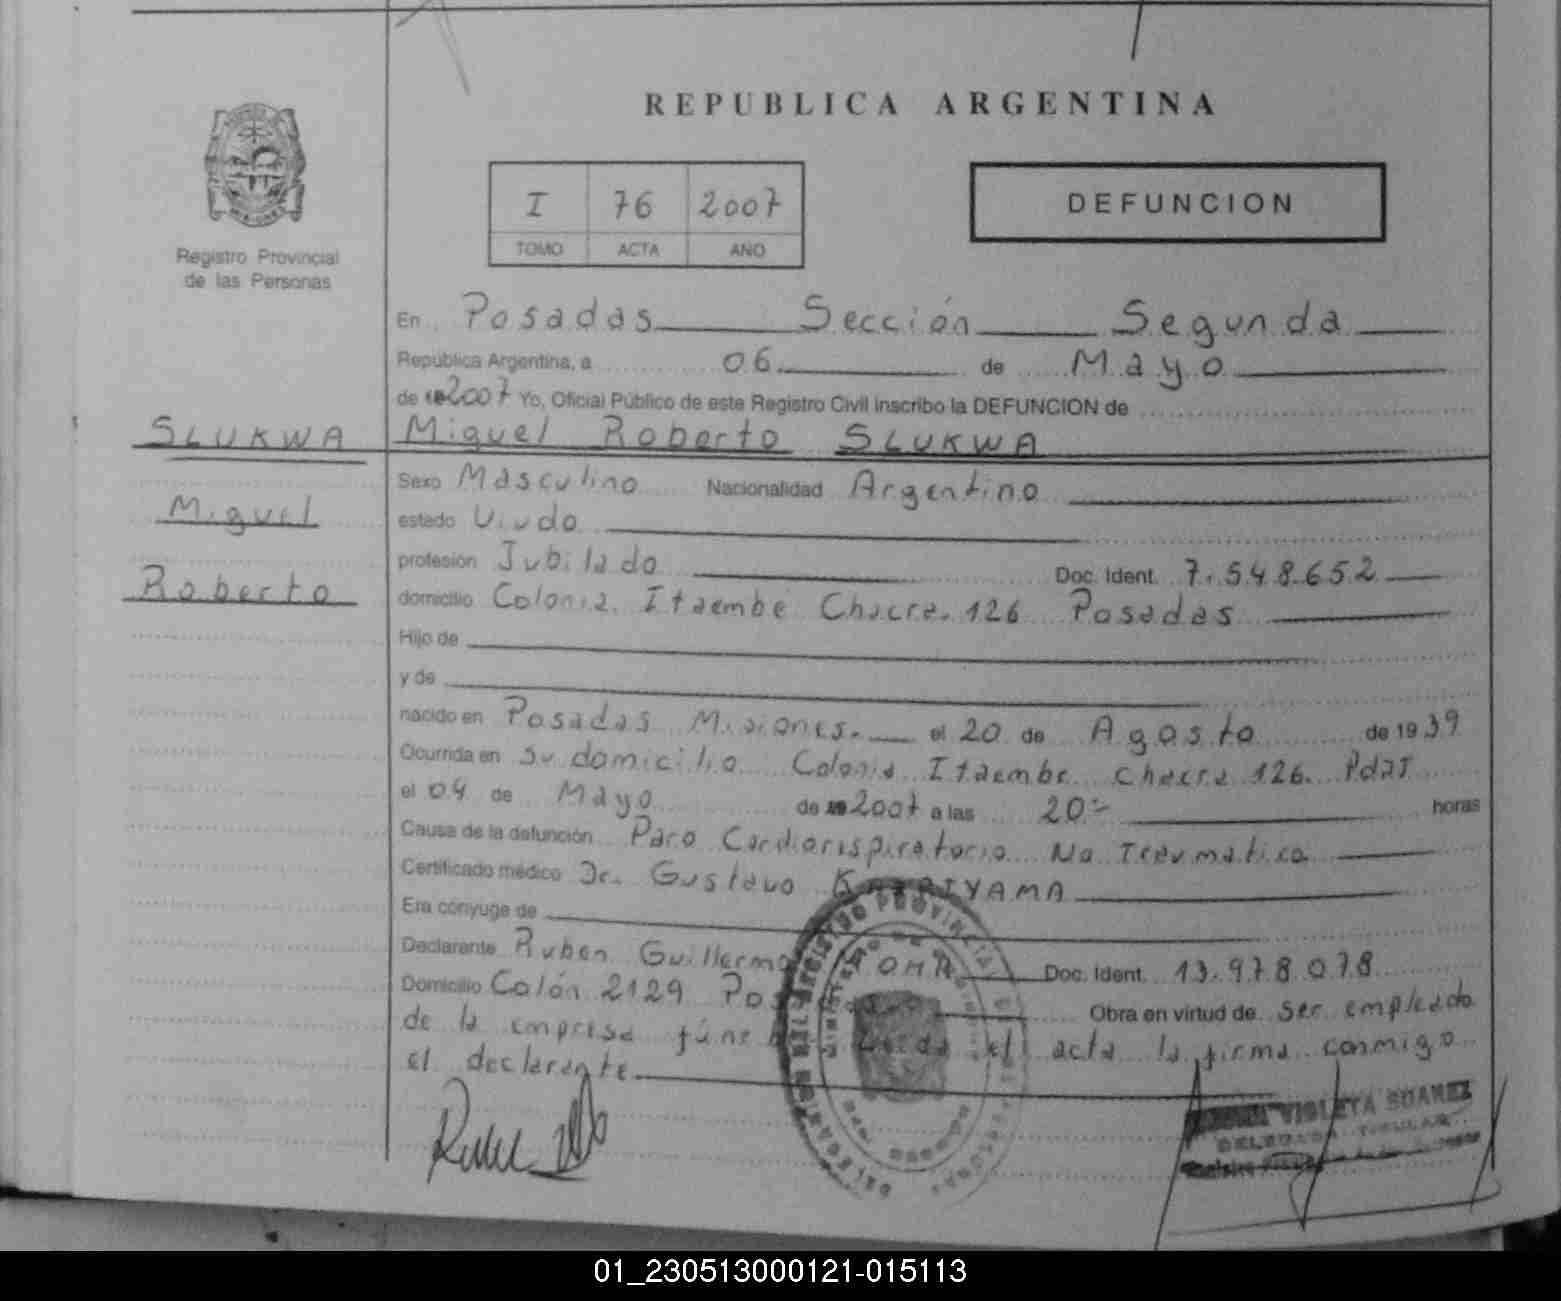 REPUBLICA ARGENTINA
Registro Provincial
de las Personas
I 76 2007
TOMO ACTA AÑO
DEFUNCION
En Posadas Sección Segunda
República Argentina, a 06 de Mayo
de 2007 Yo, Oficial Público de este Registro Civil inscribo la DEFUNCION de
SLUKWA
Miguel
Roberto
Miguel Roberto SLUKWA
Sexo Masculino Nacionalidad Argentino
estado Viudo
profesión Jubilado Doc. Ident. 7.548.652
domicilio Colonia Itaembé Chacra 126 Posadas
Hijo de
y de
nacido en Posadas Misiones. el 20 de Agosto de 1939
Ocurrida en su domicilio Colonia Itaembe chacra 126. Pdas
el 04 de Mayo de 2007 a las 20 horas
Causa de la defunción Paro Cardiorispiratorio No Traumatico
Certificado médico Dr. Gustavo
Era cónyuge de
Declarante Ruben Guillermo Doc. Ident. 13.978.078
Domicilio Colón 2129 Obra en virtud de ser empleado
de la empresa el acta la firma conmigo
el declarante
VIOLETA SUAREZ
DELEGADA TITULAR
01_230513000121-015113